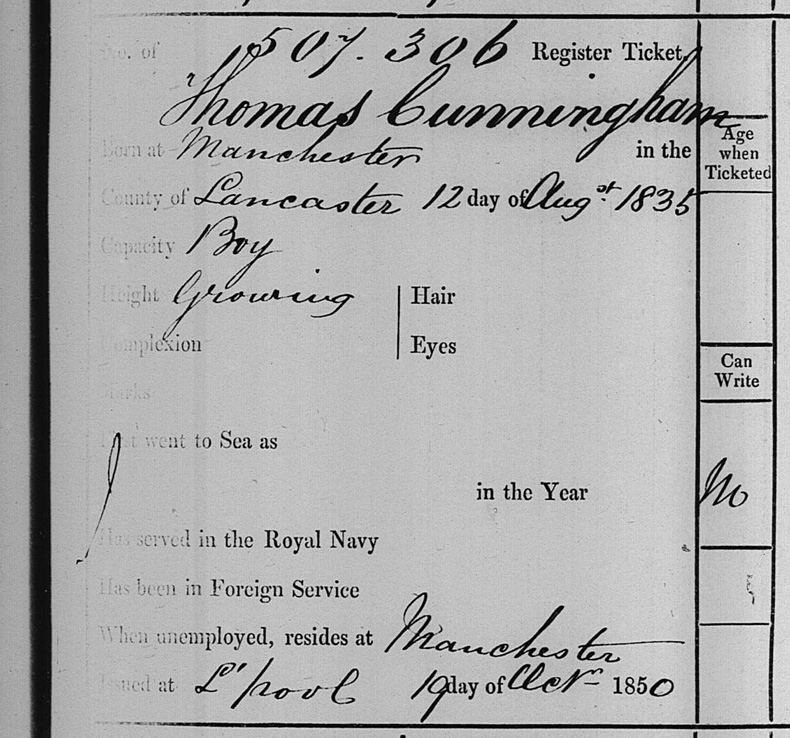 No. of 507.306 Register Ticket
Thomas Cunningham
Born at Manchester in the
County of Lancaster 12 day of Augst 1835
Capacity Boy
Height Growing Hair
Complexion Eyes
Marks
First went to Sea as
in the Year
Has served in the Royal Navy
Has been in Foreign Service
When unemployed, resides at Manchester
Issued at L'pool 19 day of Octr 1850
Age
when
Ticketed
Can
Write
No